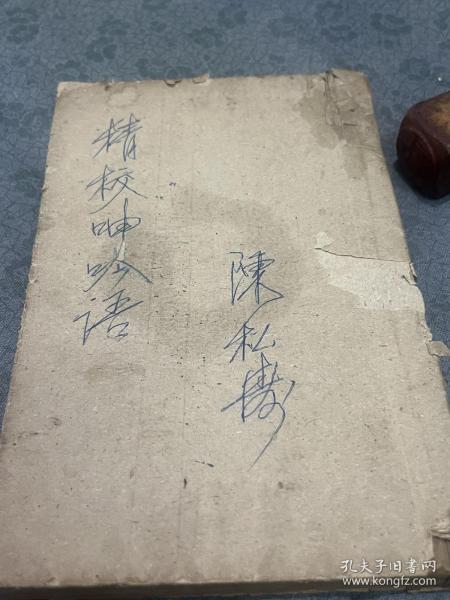 精校呻吟语
陳私
孔夫子旧书网
www.kongfz.com